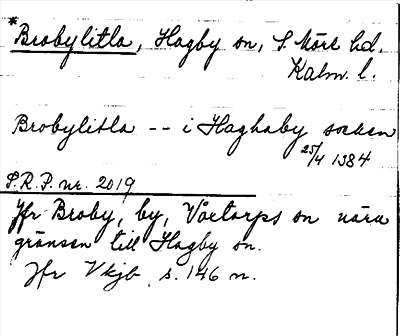 *Brobylitla, Hagby sn, S. Möre hd.
Kalm. l.
Brobylitla -- i Haghaby socken
25/4 1384
S.R.P. nr. 2019
Jfr Broby, by, Voxtorps sn nära
gränsen till Hagby sn.
Jfr Vkjb s. 146 n.